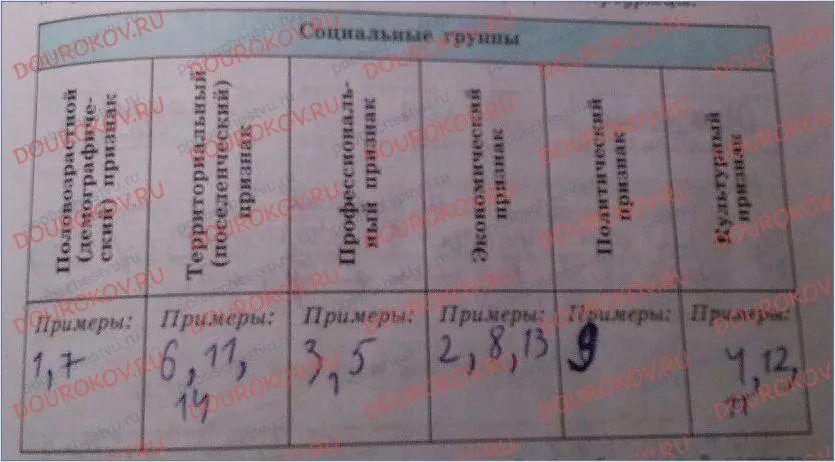 Социальные группы
Половозрастной
(демографиче-
ский) признак
Территориальный
(поселенческий)
признак
Профессиональ-
ный признак
Экономический
признак
Политический
признак
Культурный
признак
Примеры: Примеры: Примеры: Примеры: Примеры: Примеры:
1, 7
6, 11,
14
3, 5
2, 8, 13
9
4, 12,
11
DOUROKOV.RU